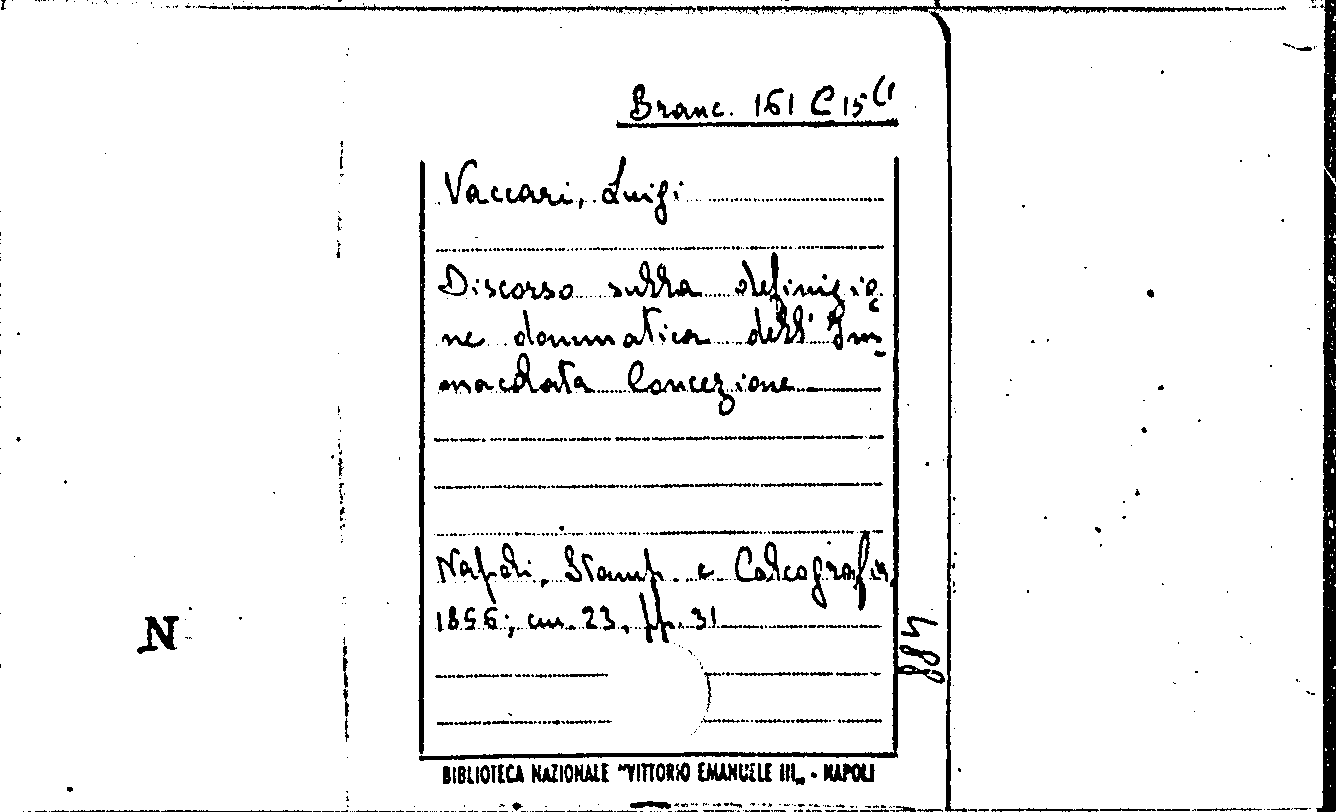 Branc. 161 C 15
Vaccari, Luigi
Discorso sulla definizio
ne dommatica dell'Im
macolata Concezione
Napoli, Stamp. e Calcografia,
1856; cm. 23, pp. 31
488
N
BIBLIOTECA NAZIONALE "VITTORIO EMANUELE III„ - NAPOLI